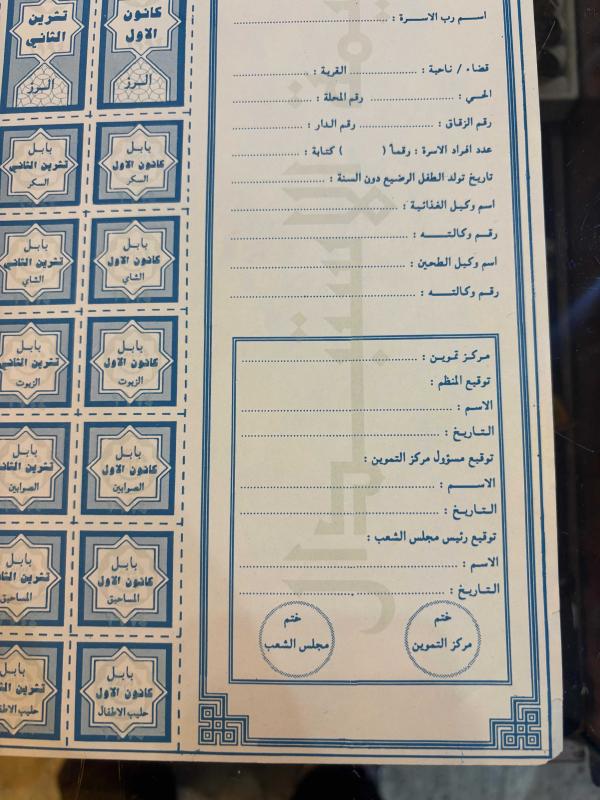 اسم رب الاسرة :
قضاء / ناحية : القرية :
الحي : رقم المحلة :
رقم الزقاق : رقم الدار :
عدد افراد الاسرة : رقماً ( ) كتابة :
تاريخ تولد الطفل الرضيع دون السنة :
اسم وكيل الغذائية :
رقم وكالته :
اسم وكيل الطحين :
رقم وكالته :
مركز تموين :
توقيع المنظم :
الاسم :
التاريخ :
توقيع مسؤول مركز التموين :
الاسم :
التاريخ :
توقيع رئيس مجلس الشعب :
الاسم :
التاريخ :
ختم
مركز التموين
ختم
مجلس الشعب
كانون
الاول
الرز
تشرين
الثاني
الرز
بابل
كانون الاول
السكر
بابل
تشرين الثاني
السكر
بابل
كانون الاول
الشاي
بابل
تشرين الثاني
الشاي
بابل
كانون الاول
الزيوت
بابل
تشرين الثاني
الزيوت
بابل
كانون الاول
الصوابين
بابل
تشرين الثاني
الصوابين
بابل
كانون الاول
المساحيق
بابل
تشرين
المساحيق
بابل
كانون الاول
حليب الاطفال
بابل
تشرين
حليب